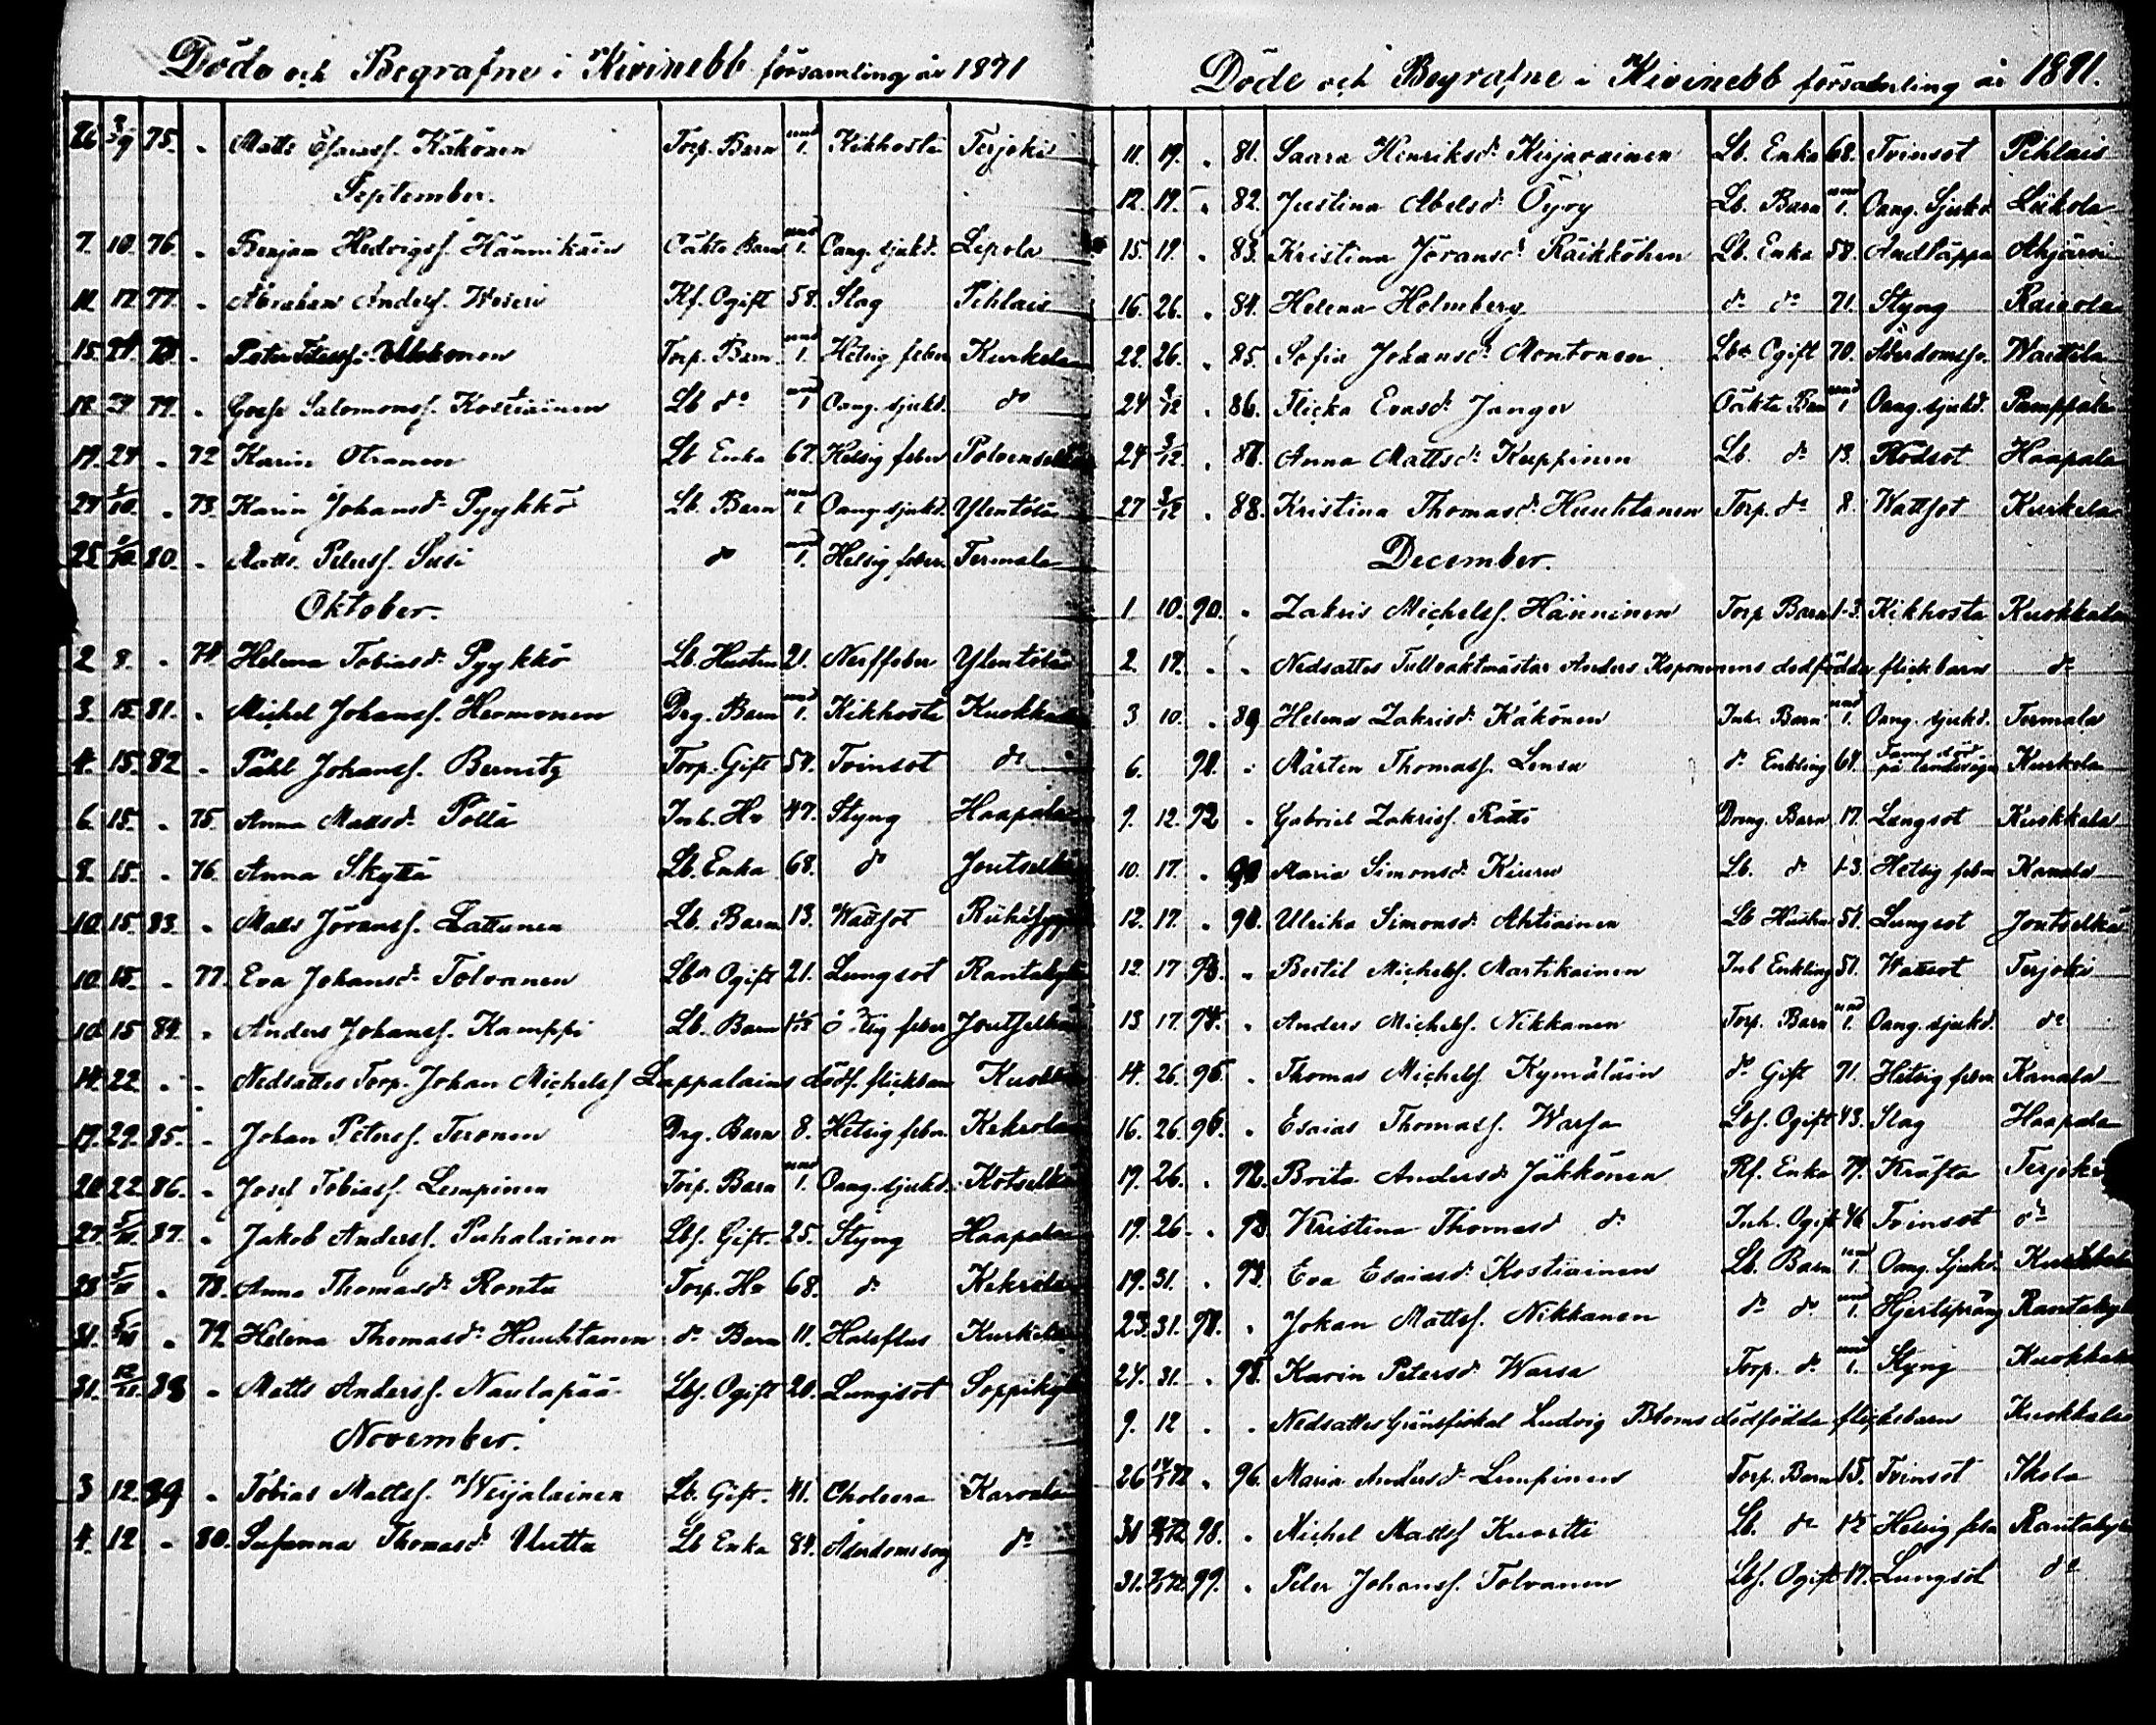 Döde och Begrafne i Kivinebb församling år 1871
26 3/9 75. " Matts Esaiass. Käkönen Torp. Barn und 1. Kikhosta Terjoki
September.
7. 10. 76. " Benjam Hedvigss. Hännikäin Oäkta Barn und 1. Oang. sjukd. Lipola
11. 17. 77. " Abraham Anderss. Kf. Ogift 58. Slag Pihlais
15. 24 78. " Peter Peterss. Ukkonen Torp. Barn und 1. Hetsig feber Kurkela
18. 24 79. " Salomonss. Kostiainen Lb. do und 1 Oang. sjukd. do
19. 24 " 72 Karin Otranen Lb Enka 67. Hetsig feber Polvenselkä
24 1/10. " 73. Karin Johansd. Pyykkö Lb. Barn und 1. Oang. sjukd. Ylentölä
25 1/10. 80. " Matts Peterss. Susi do und 1. Hetsig feber Termala
Oktober.
2 8. " 74. Helena Tobiasd. Pyykkö Lb. Hustru 21. Nerffeber Ylentölä
3. 15. 81. " Michel Johanss. Hermonen Drg. Barn und 1. Kikhosta Kuokkala
4. 15. 82 " Påhl Johanss. Bernitz Torp. Gift 54. Tvinsot do
6. 15. " 75. Anna Mattsd. Pöllä Inh. Hu 47. Styng Haapala
8. 15. " 76. Anna Skyttä Lb. Enka 68. do Joutselkä
10. 15. 83. " Matts Jöranss. Lattunen Lb. Barn 13. Wattsot
10. 15. " 77. Eva Johansd. Tolvanen Lbr Ogift 21. Lungsot Rantakylä
10. 15 84. " Anders Johanss. Kamppi Lb. Barn Hetsig feber Joutselkä
14. 22. " " Nedsattes Torp. Johan Michelss Lappalains dödf. flickbarn Kuokkala
19. 29. 85. " Johan Peterss. Teronen Drg. Barn 8. Hetsig feber. Kekrola
20. 22. 86. " Josef Tobiass. Lempinen Torp. Barn und 1. Oang. sjukd. Kotselkä
27. 5/11. 87. " Jakob Anderss. Puhalainen Lbs. Gift. 25. Styng Haapala
28 5/11 " 78. Anna Thomasd. Rontu Torp. Hu 68. do Kekrola
31. 5/11 " 79. Helena Thomasd. Huuhtanen do Barn 11. Halsflus Kurkela
31. 12/11. 88 " Matts Anderss. Naulapää Lbs. Ogift 20. Lungsot Seppikylä
November.
3 12. 89 " Tobias Mattss. Weijalainen Lb. Gift. 41. Cholera Karvala
4. 12. " 80. Susanna Thomasd. Uutta Lb Enka 84. Ålderdomssvag do
Döde och Begrafne i Kivinebb församling år 1871.
11. 19. " 81. Saara Henriksd. Kirjavainen Lb. Enka 68. Tvinsot Pihlais
12. 19. " 82. Justina Abelsd. Öyry Lb. Barn und 1. Oang. Sjukd. Liikola
15. 19. " 83. Kristina Jöransd. Räikköhen Lb. Enka 58. Andtäppa Ahjärvi
16. 26. " 84. Helena Holmberg do do 71. Styng Raivola
22. 26. " 85. Sofia Johansd. Montonen Lbr Ogift 70. Ålderdomssv. Warttila
24 3/12 " 86. Flicka Evasd. Janger Oäkta Bar und 1 Oang. sjukd. Pamppala
24 3/12. " 87. Anna Mattsd. Kuppinen Lb. do 13. Rödsot Haapala
27 3/12 " 88. Kristina Thomasd. Huuhtanen Torp. do 8. Wattsot Kurkela
December.
1. 10. 90. " Zakris Michelss. Hänninen Torp Barn 1-3. Kikhosta Kuokkala
2. 17. " " Nedsattes Tullvaktmästar Anders Koponenens dödfödda flickbarn do
3 10. " 89 Helena Zakrisd. Käkönen Inh. Barn und 1. Oang. sjukd. Termala
6. 91. " Mårten Thomass. Lensu do Enkling 64. på landsvägen Kurkela
9. 12. 92 " Gabriel Zakriss. Rötti Dreng. Barn 17. Lungsot Kuokkala
10. 17. " 90 Maria Simonsd. Kiuru Lb. do 1-3. Hetsig feber Kanala
12. 17. " 91. Ulrika Simonsd. Ahtiainen Lb Hustru 51. Lungsot Joutselkä
12. 17 93. " Bertil Michelss. Martikainen Inh Enkling 51. Wattsot Terjoki
13. 17. 94. " Anders Michelss. Nikkanen Torp. Barn und 1. Oang. sjukd. do
14. 26. 95. " Thomas Michelss. Kymäläin do Gift 71. Hetsig feber Kanala
16. 26. 96. " Esaias Thomass. Warsa Lbs. Ogift 43. Slag Haapala
19. 26. " 92. Brita Andersd. Jäkkönen Rf. Enka 79. Kräfta Terjoki
19. 26. " 93 Kristina Thomasd do Inh. Ogift 46 Tvinsot do
19. 31. " 93. Eva Esaiasd. Kostiainen Lb. Barn und 1. Oang. Sjukd. Kuokkala
23. 31. 97. " Johan Mattss. Nikkanen do do und 1. Hjertspräng Rantakylä
24. 31. " 95. Karin Petersd. Warsa Torp. do und 1. Styng Kuokkala
9. 12 " " Nedsattes Ludvig Bloms dödfödda flickebarn Kuokkala
26 14/1 72 " 96. Maria Andersd. Lempinen Torp. Barn 15. Tvinsot Ikola
31 98. " Michel Mattss Kuortti Lb. do Hetsig feber Rantakylä
31. 99. " Peter Johanss. Tolvanen Lbs. Ogift 17. Lungsot do